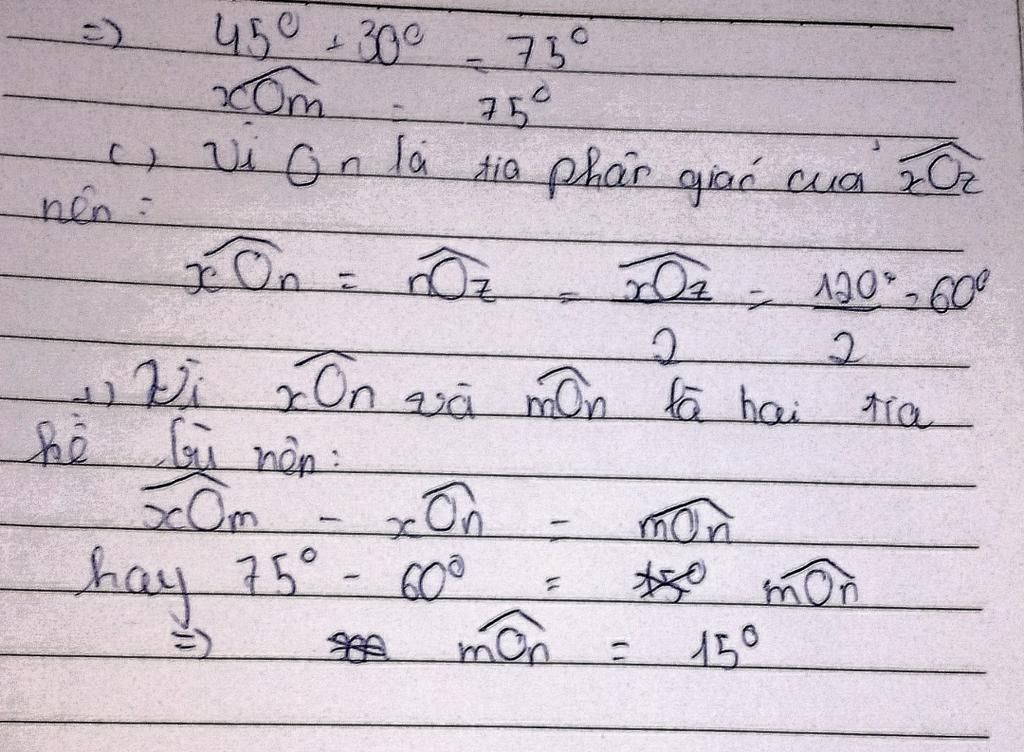 => 45° + 30° = 75°
xOm = 75°
c) Vì On là tia phân giác của xOz
nên :
xOn = nOz = xOz/2 = 120°/2 = 60°
Vì xOn và mOn là hai tia
kề bù nên :
xOm - xOn = mOn
hay 75° - 60° = mOn
=> mOn = 15°